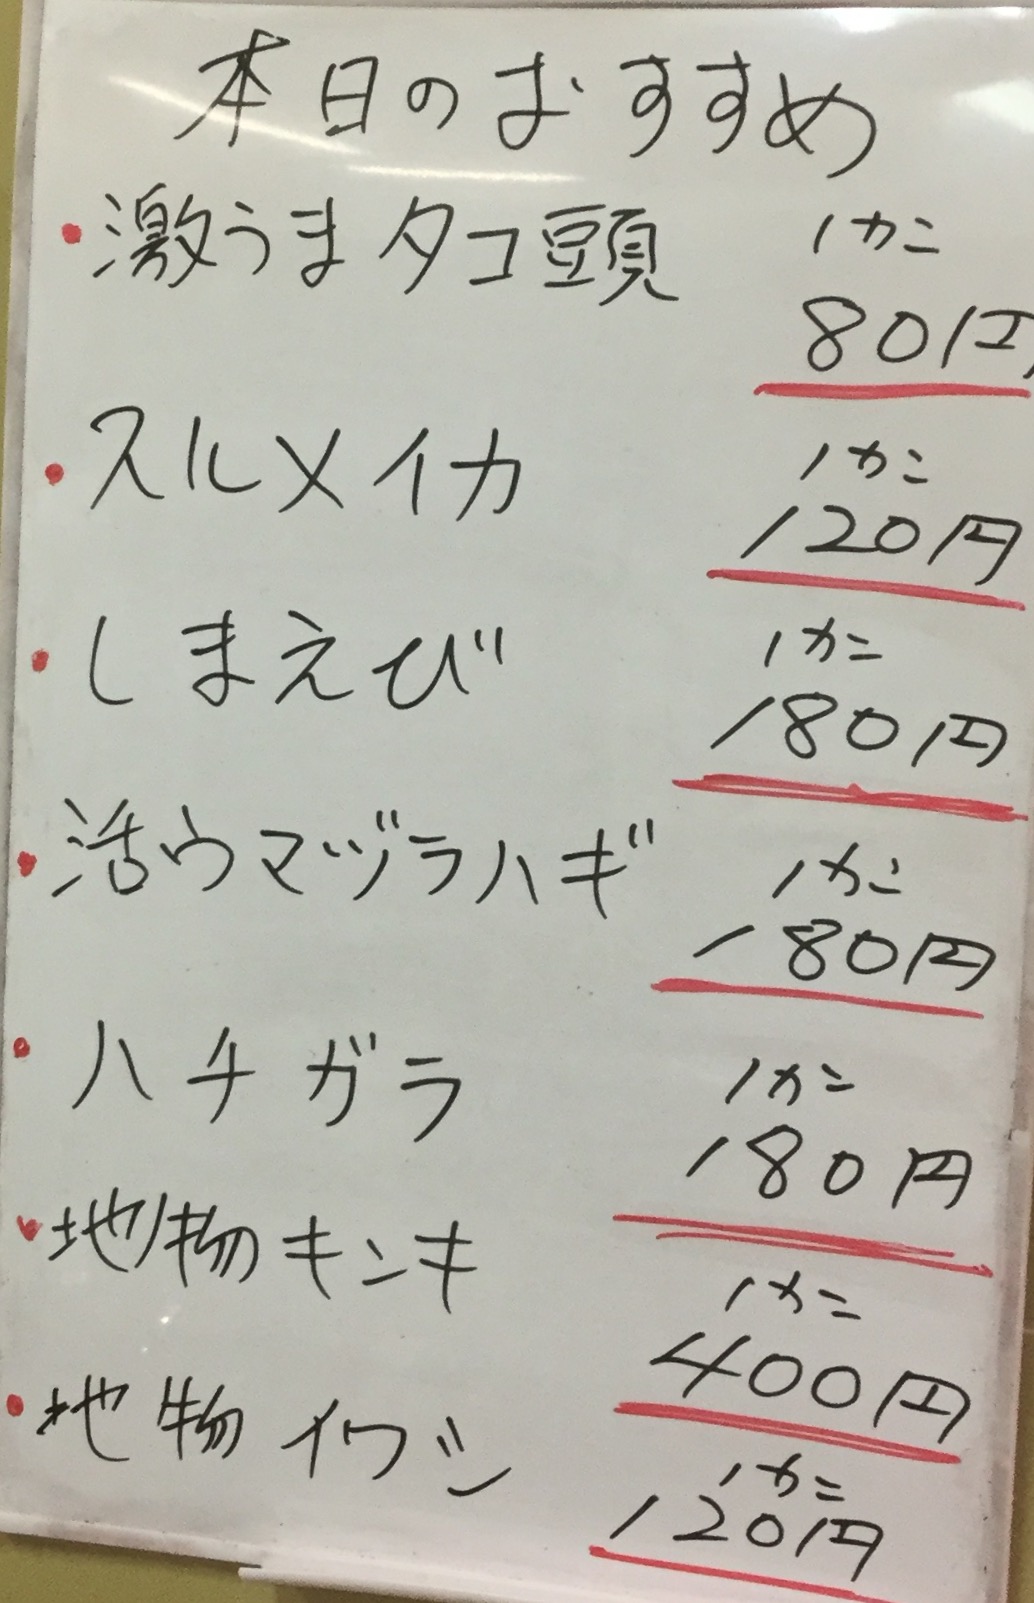 本日のおすすめ
・激うまタコ頭 1カン
80円
・スルメイカ 1カン
120円
・しまえび 1カン
180円
・活ウマヅラハギ 1カン
180円
・ハチガラ 1カン
180円
・地物キンキ 1カン
400円
・地物イワシ 1カン
120円